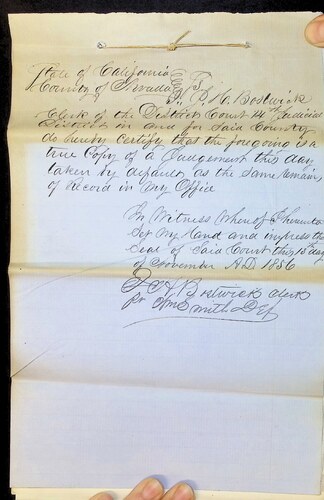 State of California
County of Nevada } SS
I, R. H. Bostwick
Clerk of the District Court 14th Judicial
District in and for Said County
do hereby Certify that the foregoing is a
true Copy of a Judgement this day
taken by default as the same remains
of Record in My Office
In Witness Whereof I hereunto
Set My Hand and impress the
Seal of Said Court this 15th day
of November A.D. 1856
Bostwick clerk
pr Wm Smith Dep